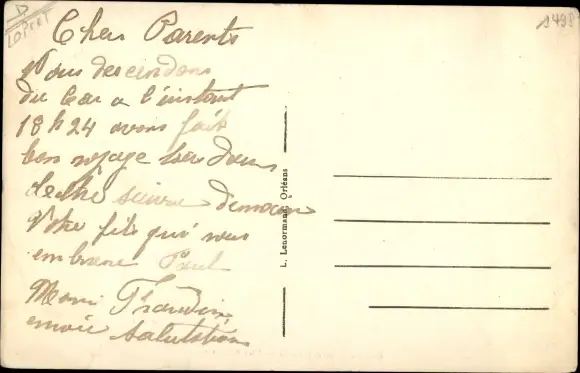 LOIRET
Chers Parents
Nous descendons
du Car a l'instant
18h24 avons fait
bon voyage
suivre demain
Votre fils qui vous
embrasse Paul
envoie salutations
L. Lenormand Orléans